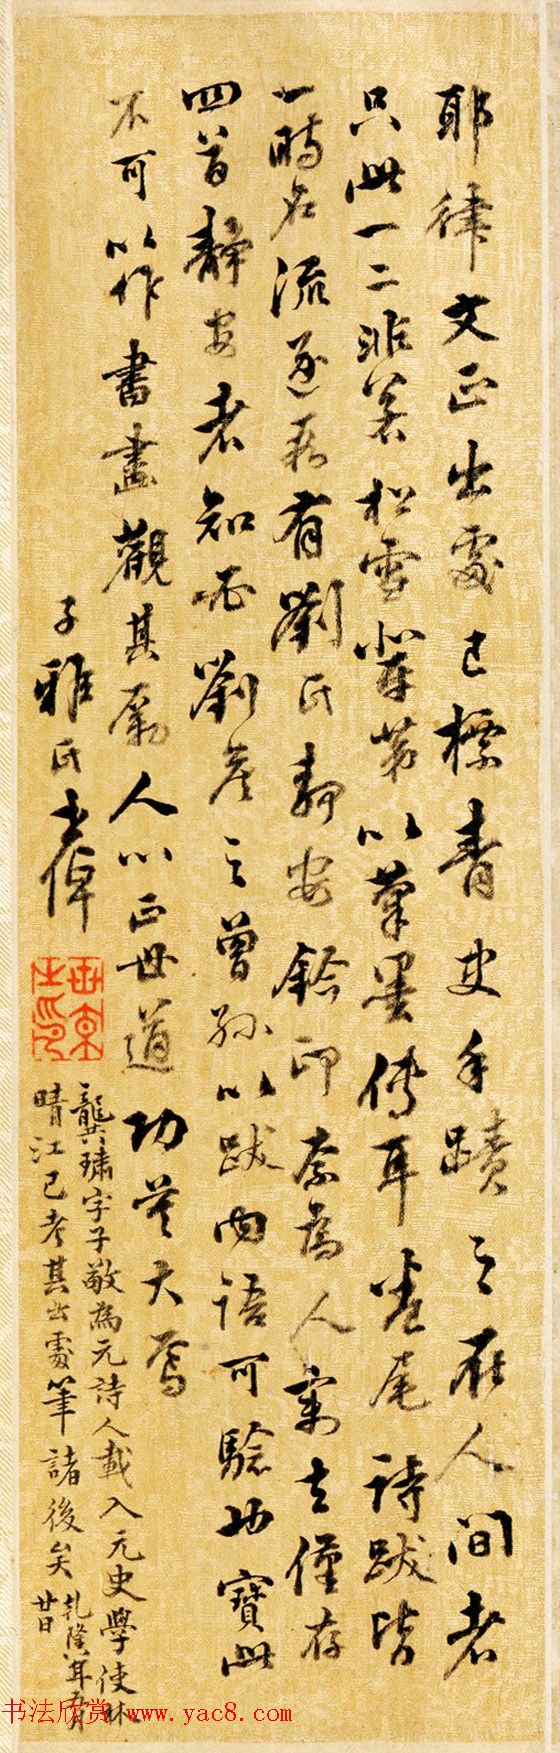 耶律文正出處已標青史手蹟之在人間者
只此一二非若松雪輩第以筆墨傳耳卷尾詩跋皆
一時名流逐段有劉氏靜安鈐印柰為人竊去僅存
四首靜安者知必劉君之曾孫以跋内語可驗也寶此
不可以作書畫觀其勵人心正世道功莫大焉
子雅氏士倬
龔璛字子敬為元詩人載入元史學使林
晴江已考其出處筆諸後矣 乾隆
廿日
书法欣赏www.yac8.com